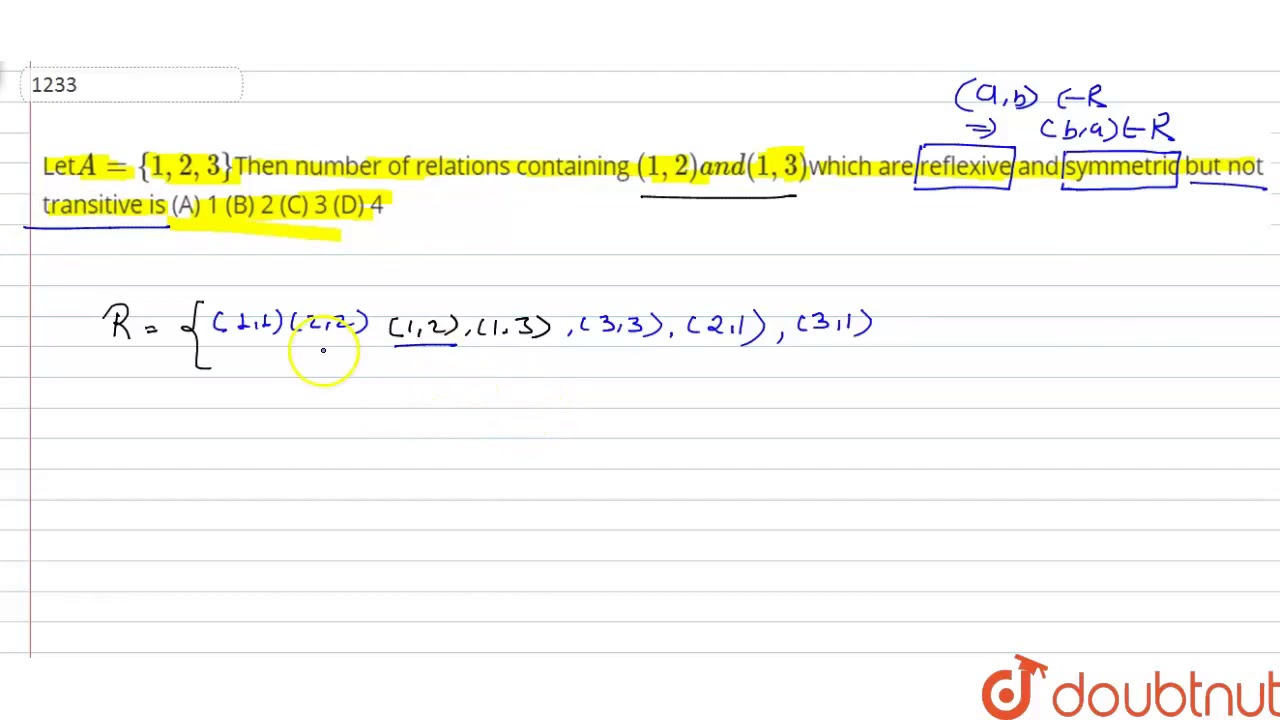 1233
(a,b) ∈ R
⇒ (b,a) ∈ R
Let A = {1, 2, 3}Then number of relations containing (1, 2)and(1, 3)which are reflexive and symmetric but not
transitive is (A) 1 (B) 2 (C) 3 (D) 4
R = { (1,1) (2,2) (1,2), (1,3), (3,3), (2,1), (3,1)
doubtnut